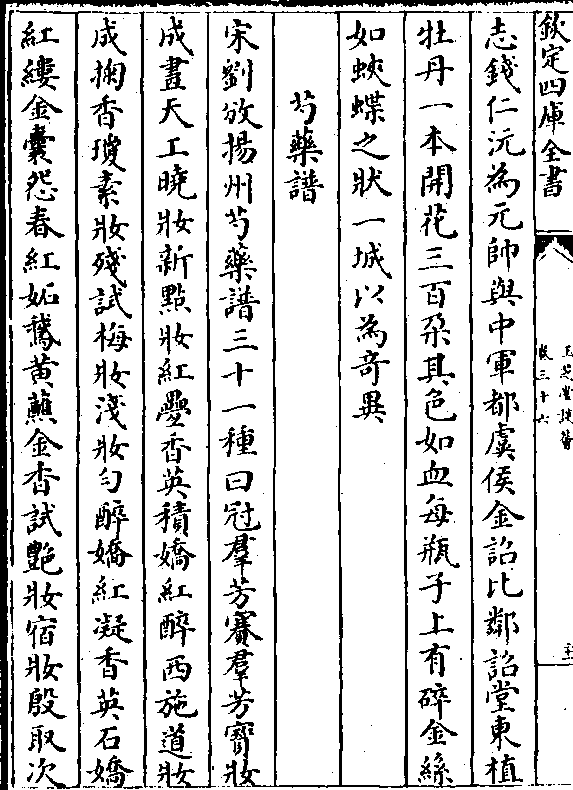 欽定四庫全書
玉芝堂談薈
卷三十六
志錢仁沅為元帥與中軍都虞侯金詔比鄰詔堂東植
牡丹一本開花三百朶其色如血每瓶子上有碎金絲
如蛺蝶之狀一城以為奇異
芍藥譜
宋劉攽揚州芍藥譜三十一種曰冠羣芳賽羣芳寳妝
成盡天工曉妝新點妝紅疊香英積嬌紅醉西施道妝
成掬香瓊素妝殘試梅妝淺妝勻醉嬌紅凝香英石嬌
紅縷金囊怨春紅妬鵞黄蘸金香試艷妝宿妝殷取次